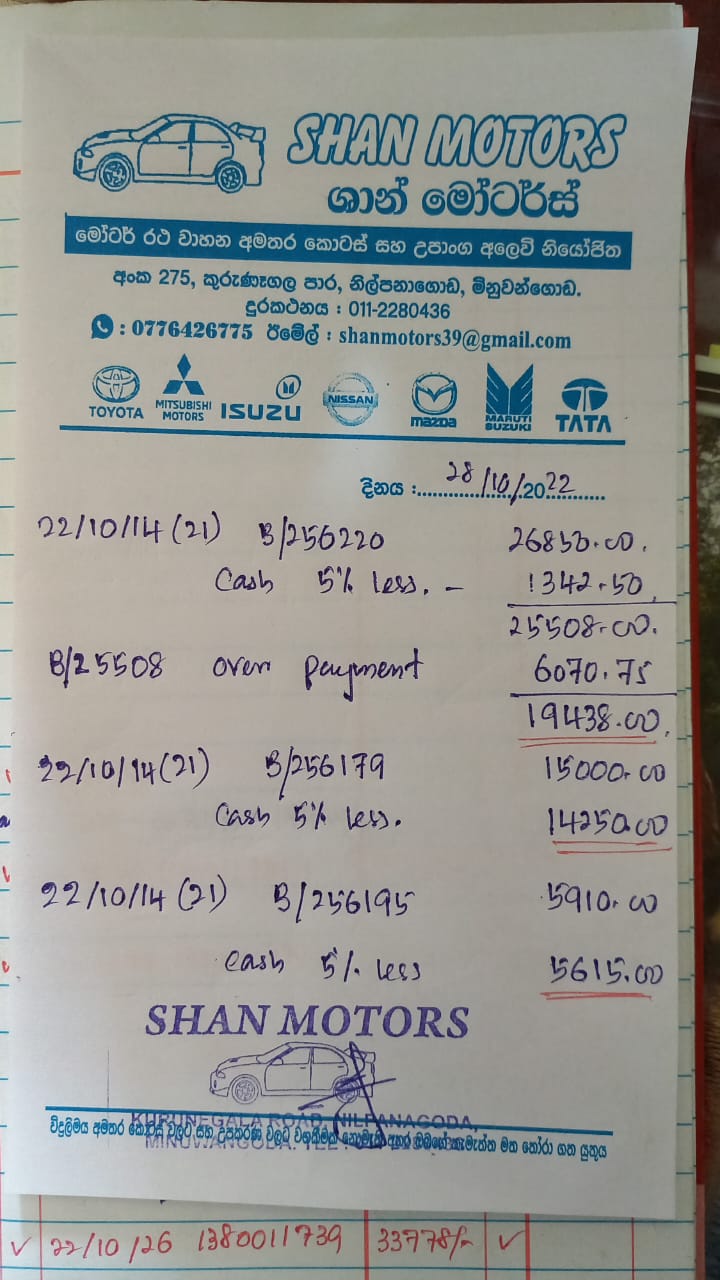 SHAN MOTORS
ශාන් මෝටර්ස්
මෝටර් රථ වාහන අමතර කොටස් සහ උපාංග අලෙවි නියෝජිත
අංක 275, කුරුණෑගල පාර, නිල්පනාගොඩ, මිනුවන්ගොඩ.
දුරකථනය : 011-2280436
: 0776426775 ඊමේල් : shanmotors39@gmail.com
TOYOTA MITSUBISHI MOTORS ISUZU NISSAN mazda MARUTI SUZUKI TATA
දිනය :..........28/10/2022..........
22/10/14 (21) B/256220 26850.00.
Cash 5% less. - 1342.50
25508.00.
B/25508 over payment 6070.75
19438.00.
22/10/14 (21) B/256179 15000.00
Cash 5% less. 14250.00
22/10/14 (21) B/256195 5910.00
Cash 5% less 5615.00
SHAN MOTORS
KURUNEGALA ROAD, NILPANAGODA,
MINUWANGODA.
විදුලිමය අමතර කොටස් වලට සහ උපකරණ වලට වගකීමක් නොමැති අතර ඔබගේ කැමැත්ත මත තෝරා ගත යුතුය
22/10/26 1380011739 33778/-